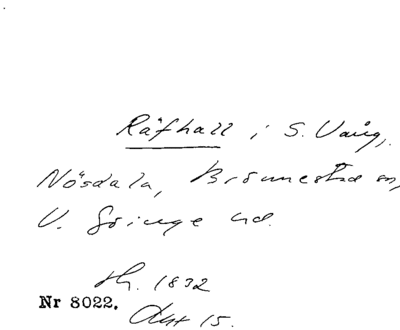 Räfhall i S. Vång,
Nösdala, Brönnestad sn,
V. Göinge hd.
th. 1832
Nr 8022. Akt 15.